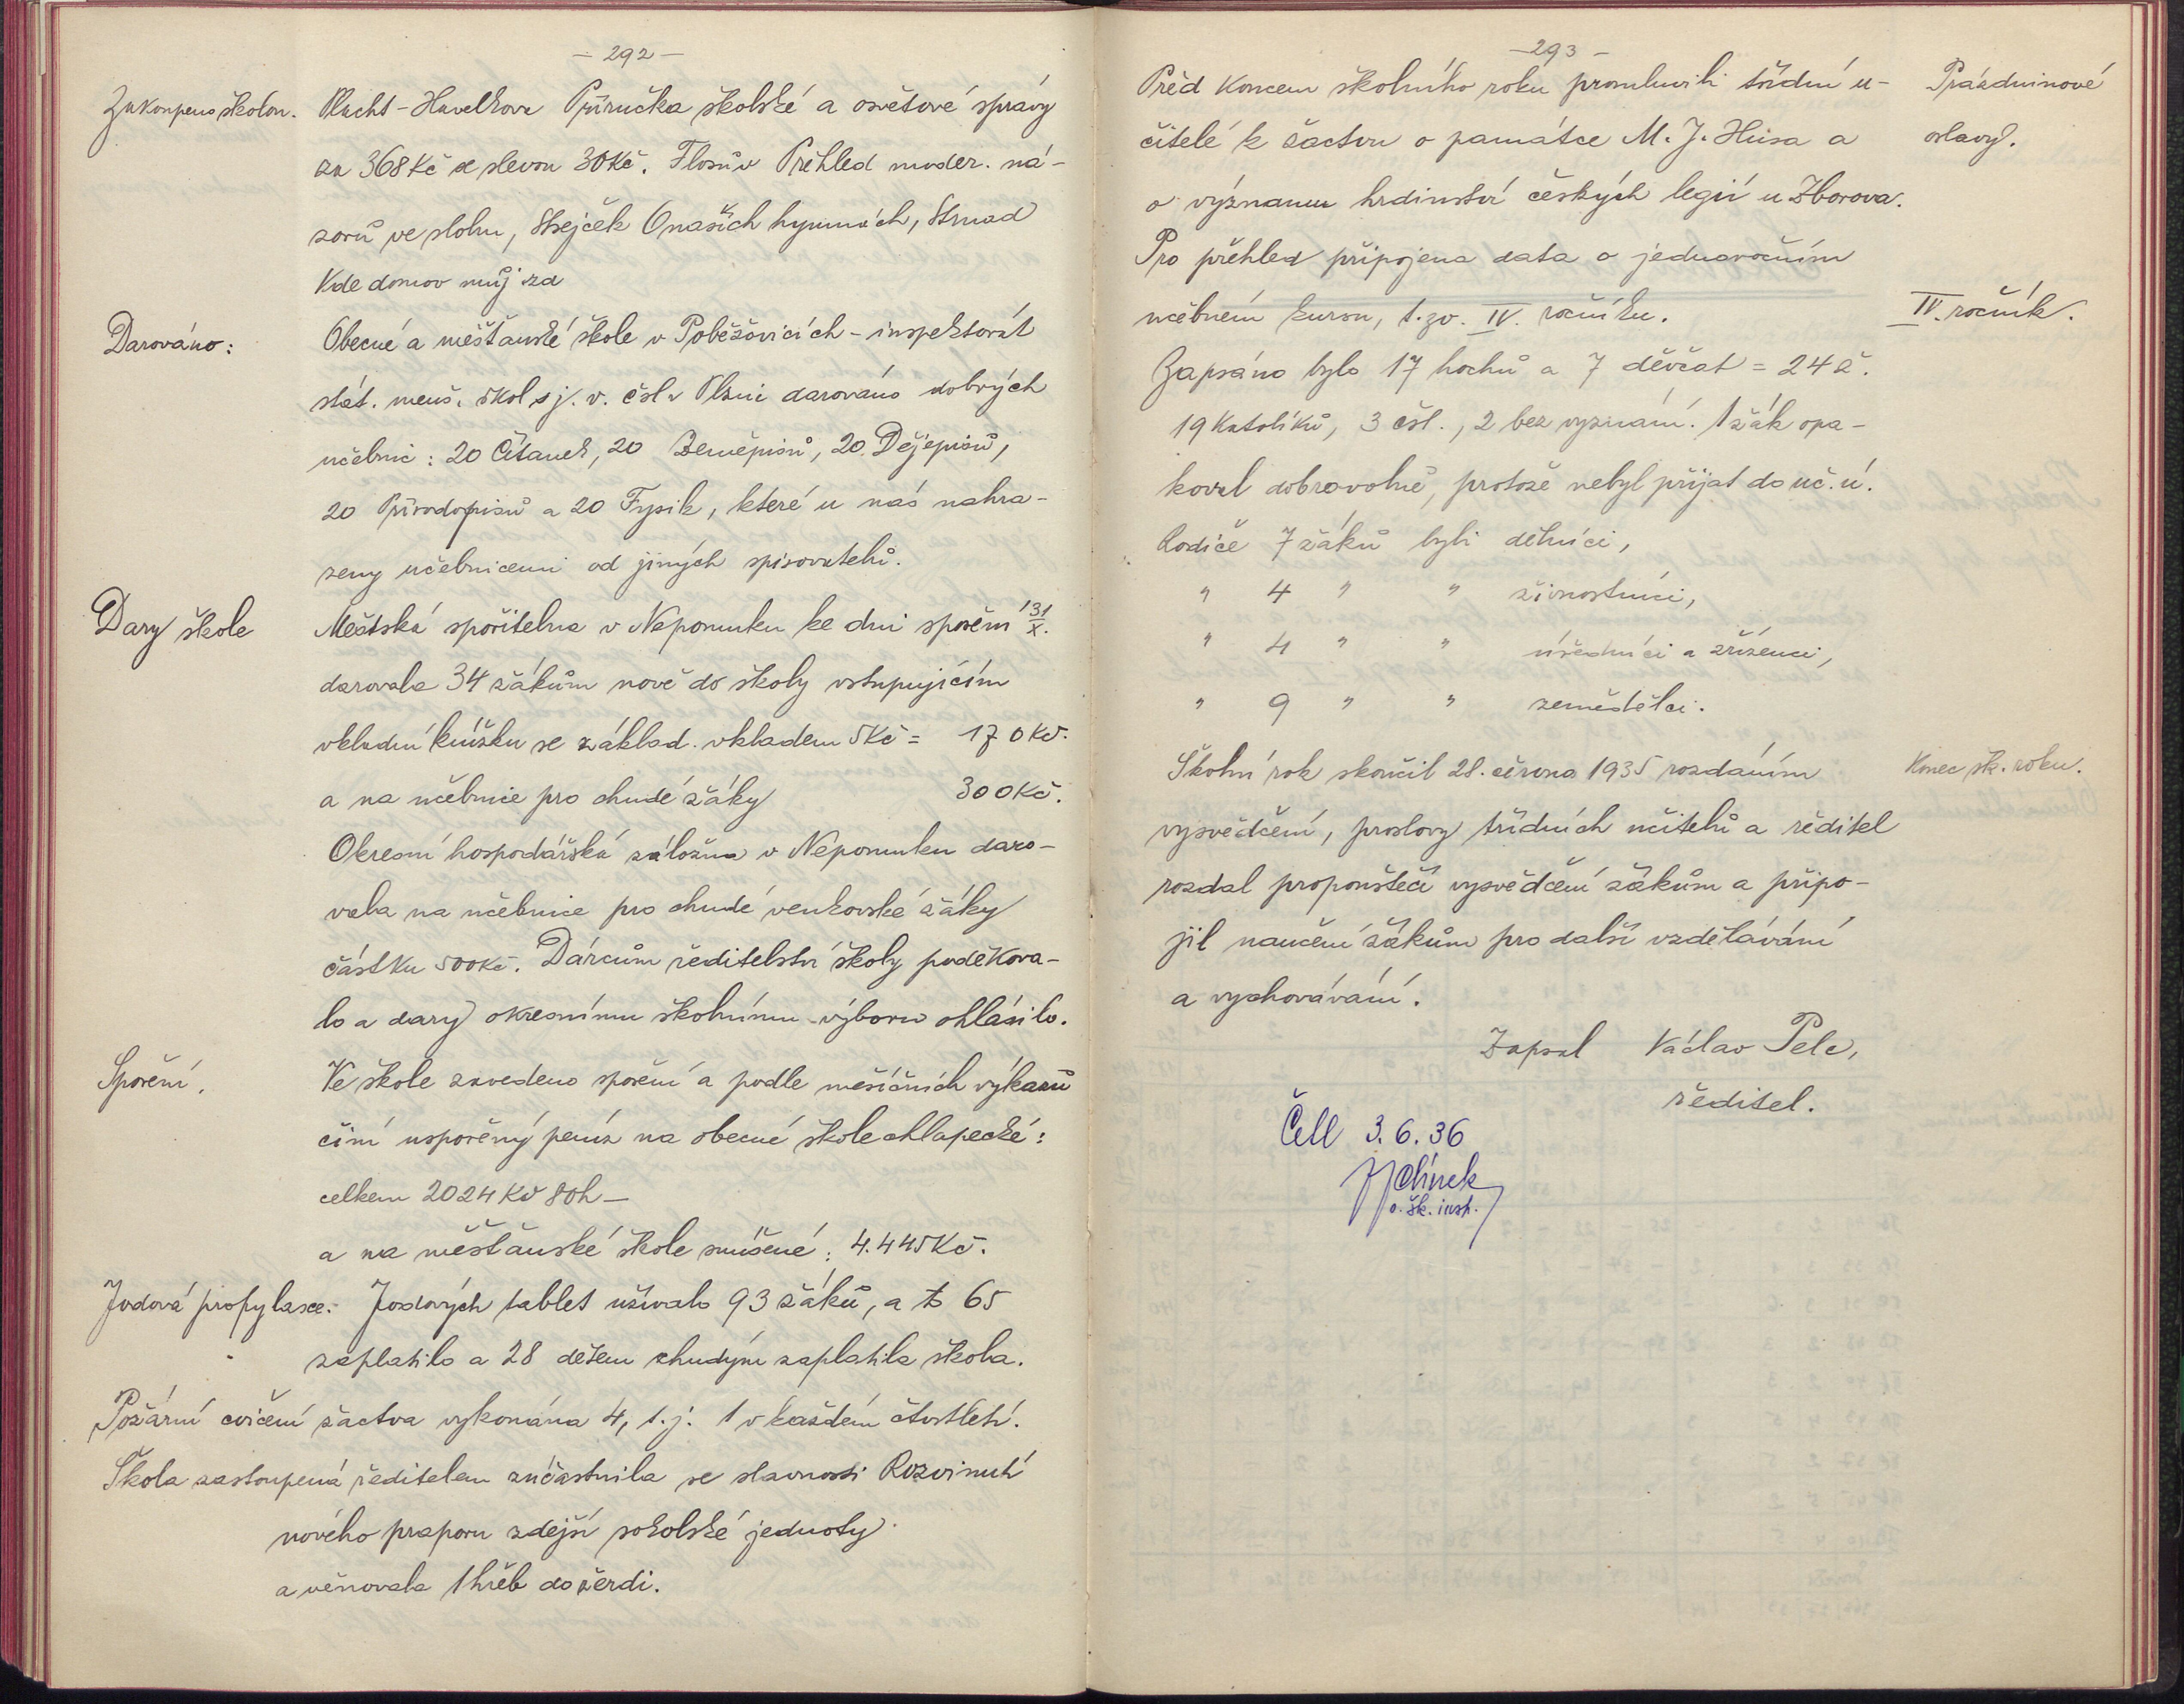 – 292 –
Zakoupeno školou. Placht-Havelkova Příručka školské a osvětové správy
za 368 Kč se slevou 30 Kč. Flosův Přehled moder. ná-
zorů ve slohu, Stejček O našich hymnách, Strnad
Kde domov můj za
Darováno: Obecné a měšťanské škole v Poběžovicích – inspektorát
stát. menš. škol s j. v. čsl. v Plzni darováno dobrých
učebnic: 20 Čítanek, 20 Zeměpisů, 20 Dějepisů,
20 Přírodopisů a 20 Fysik, které u nás nahra-
zeny učebnicemi od jiných spisovatelů.
Dary škole Městská spořitelna v Nepomuku ke dni spoření 31/X.
darovala 34 žákům nově do školy vstupujícím
vkladní knížku se základ. vkladem 5 Kč = 170 Kč.
a na učebnice pro chudé žáky 300 Kč.
Okresní hospodářská záložna v Nepomuku daro-
vala na učebnice pro chudé venkovské žáky
částku 500 Kč. Dárcům ředitelství školy poděkova-
lo a dary okresnímu školnímu výboru ohlásilo.
Spoření. Ve škole zavedeno spoření a podle měsíčních výkazů
činí uspořený peníz na obecné škole chlapecké:
celkem 2024 Kč 80 h –
a na měšťanské škole smíšené: 4.445 Kč.
Jodová profylaxe. Jodových tablet užívalo 93 žáků, a to 65
zaplatilo a 28 dětem chudým zaplatila škola.
Požární cvičení žactva vykonána 4, t. j. 1 v každém čtvrtletí.
Škola zastoupená ředitelem zúčastnila se slavnosti Rozvinutí
nového praporu zdejší sokolské jednoty
a věnovala 1 hřeb do žerdi.
– 293 –
Před koncem školního roku promluvili třídní u- Prázdninové
čitelé k žactvu o památce M. J. Husa a oslavy.
o významu hrdinství českých legií u Zborova.
Pro přehled připojena data o jednoročním
učebném kursu, t. zv. IV. ročníku. IV. ročník.
Zapsáno bylo 17 hochů a 7 děvčat = 24 ž.
19 katolíků, 3 čsl., 2 bez vyznání. 1 žák opa-
koval dobrovolně, protože nebyl přijat do uč. ú.
Rodiče 7 žáků byli dělníci,
" 4 " " živnostníci,
" 4 " " úředníci a zřízenci,
" 9 " " zemědělci.
Školní rok skončil 28. června 1935 rozdáním Konec šk. roku.
vysvědčení, proslovy třídních učitelů a ředitel
rozdal propouštěcí vysvědčení žákům a připo-
jil naučení žákům pro další vzdělávání
a vychovávání.
Zapsal Václav Pelc,
ředitel.
Četl 3. 6. 36
o. šk. insp.